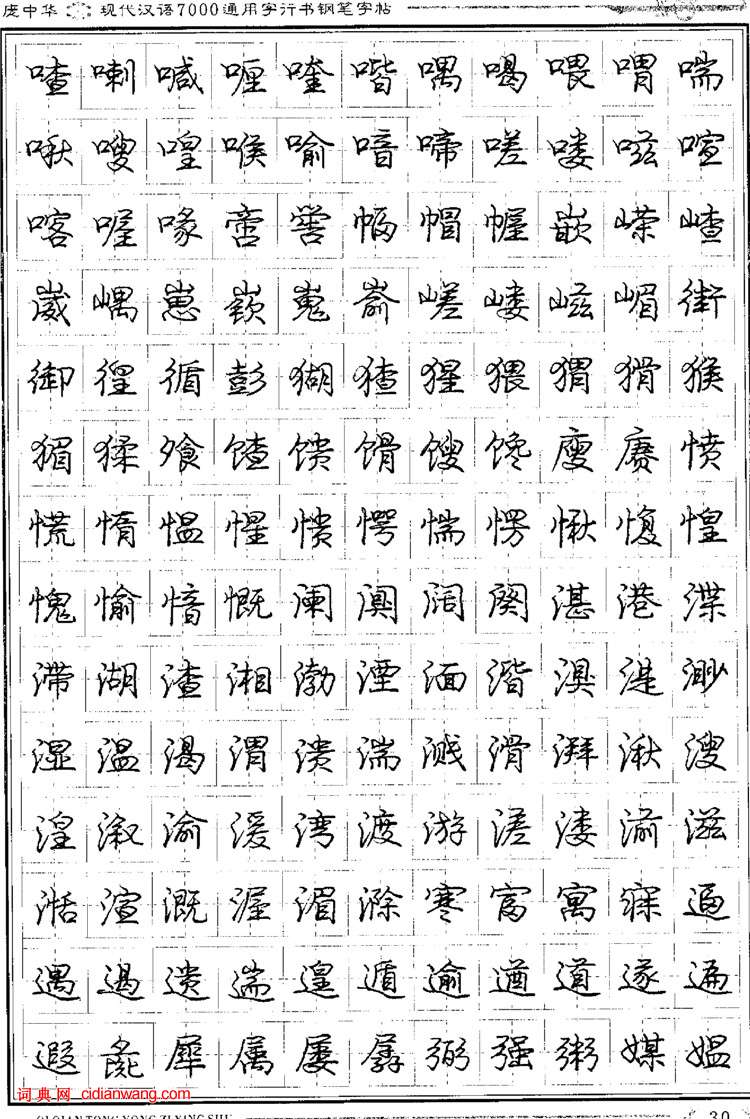 庞中华 现代汉语7000通用字行书钢笔字帖
喳喇喊喱喹喈喁喝喂喟喘
啾嗖喤喉喻喑啼嗟喽嗞喧
喀喔喙啻喾幅帽幄嵌嵘嵖
崴嵎崽嵚嵬嵛嵯嵝嵫嵋街
御徨循彭猢猹猩猥猬猾猴
猸猱飧馇馈馉馊馋廋赓愤
慌惰愠惺愦愕惴愣愀愎惶
愧愉愔慨阑阒阔阕湛港渫
滞湖渣湘渤湮湎湝湨湜渺
湿温渴渭溃湍溅滑湃湫溲
湟溆渝湲湾渡游溠溇湔滋
湉渲溉渥湄滁寒富寓寐逼
遇遏遗遄遑遁逾遒道遂遍
遐彘犀属屡孱弼强粥媒媪
词典网_cidianwang.com